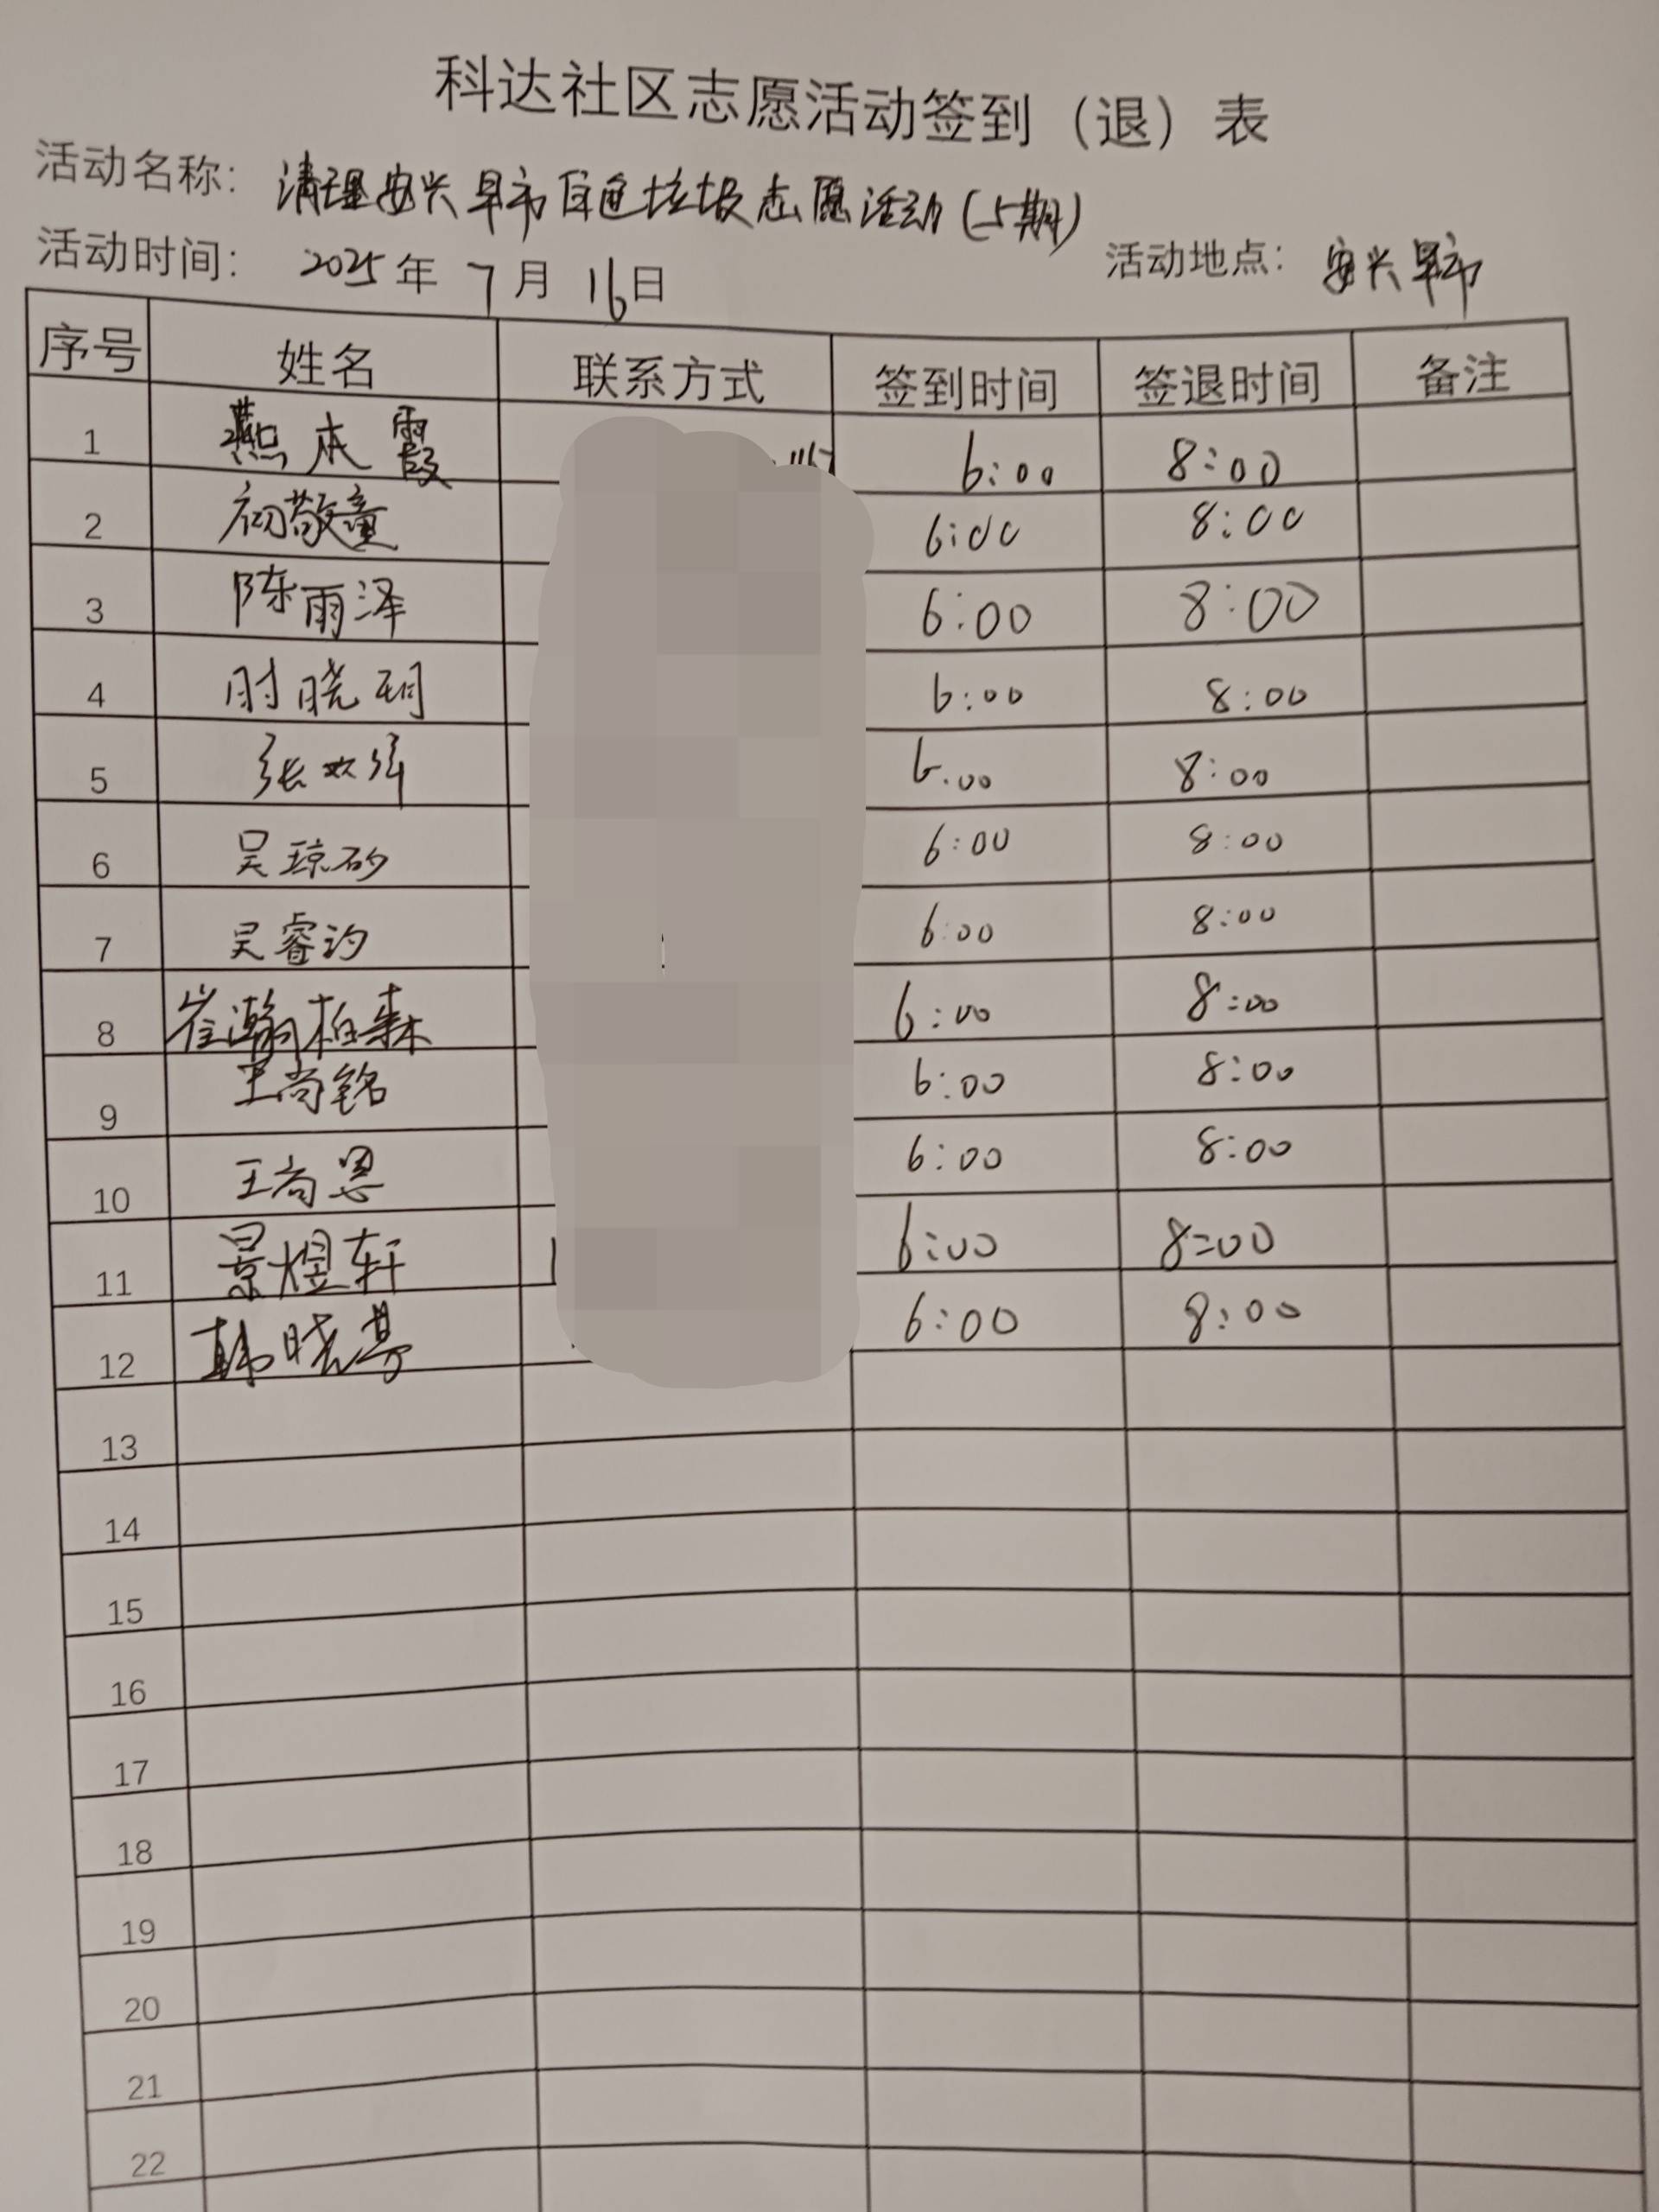 科达社区志愿活动签到（退）表
活动名称：清理安兴早市白色垃圾志愿活动(5期)
活动时间：2025年7月16日 活动地点：安兴早市
序号 姓名 联系方式 签到时间 签退时间 备注
1 燕本霞 6:00 8:00
2 初敬童 6:00 8:00
3 陈雨泽 6:00 8:00
4 时晓玥 6:00 8:00
5 张 6:00 8:00
6 吴琼砂 6:00 8:00
7 吴睿汋 6:00 8:00
8 崔瀚柏森 6:00 8:00
9 王尚铭 6:00 8:00
10 王尚恩 6:00 8:00
11 景煜轩 6:00 8:00
12 韩晓 6:00 8:00
13
14
15
16
17
18
19
20
21
22